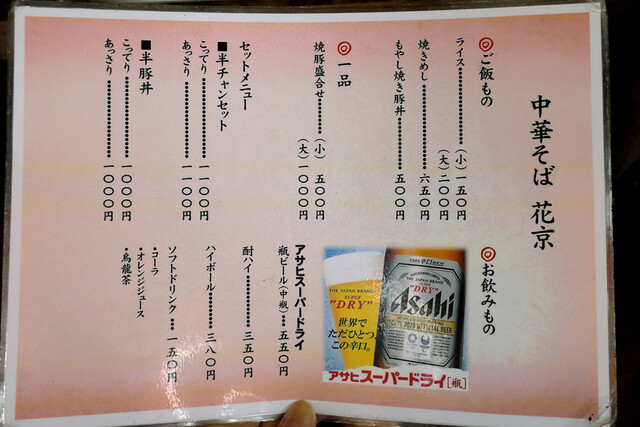 中華そば 花京
◎ご飯もの
ライス……………(小)一五〇円
(大)二〇〇円
焼きめし……………六五〇円
もやし焼き豚丼………五〇〇円
◎一品
焼豚盛合せ………(小)五〇〇円
(大)一〇〇〇円
セットメニュー
■半チャンセット
こってり……………一一〇〇円
あっさり……………一一〇〇円
■半豚丼
こってり……………一〇〇〇円
あっさり……………一〇〇〇円
◎お飲みもの
アサヒスーパードライ
瓶ビール(中瓶)…五五〇円
酎ハイ……………三五〇円
ハイボール…………三八〇円
ソフトドリンク…一五〇円
・コーラ
・オレンジジュース
・烏龍茶
THE JAPAN BRAND
SUPER
"DRY"
世界で
ただひとつ、
この辛口。
THE JAPAN BRAND
SUPER
"DRY"
Asahi
アサヒスーパードライ[瓶]